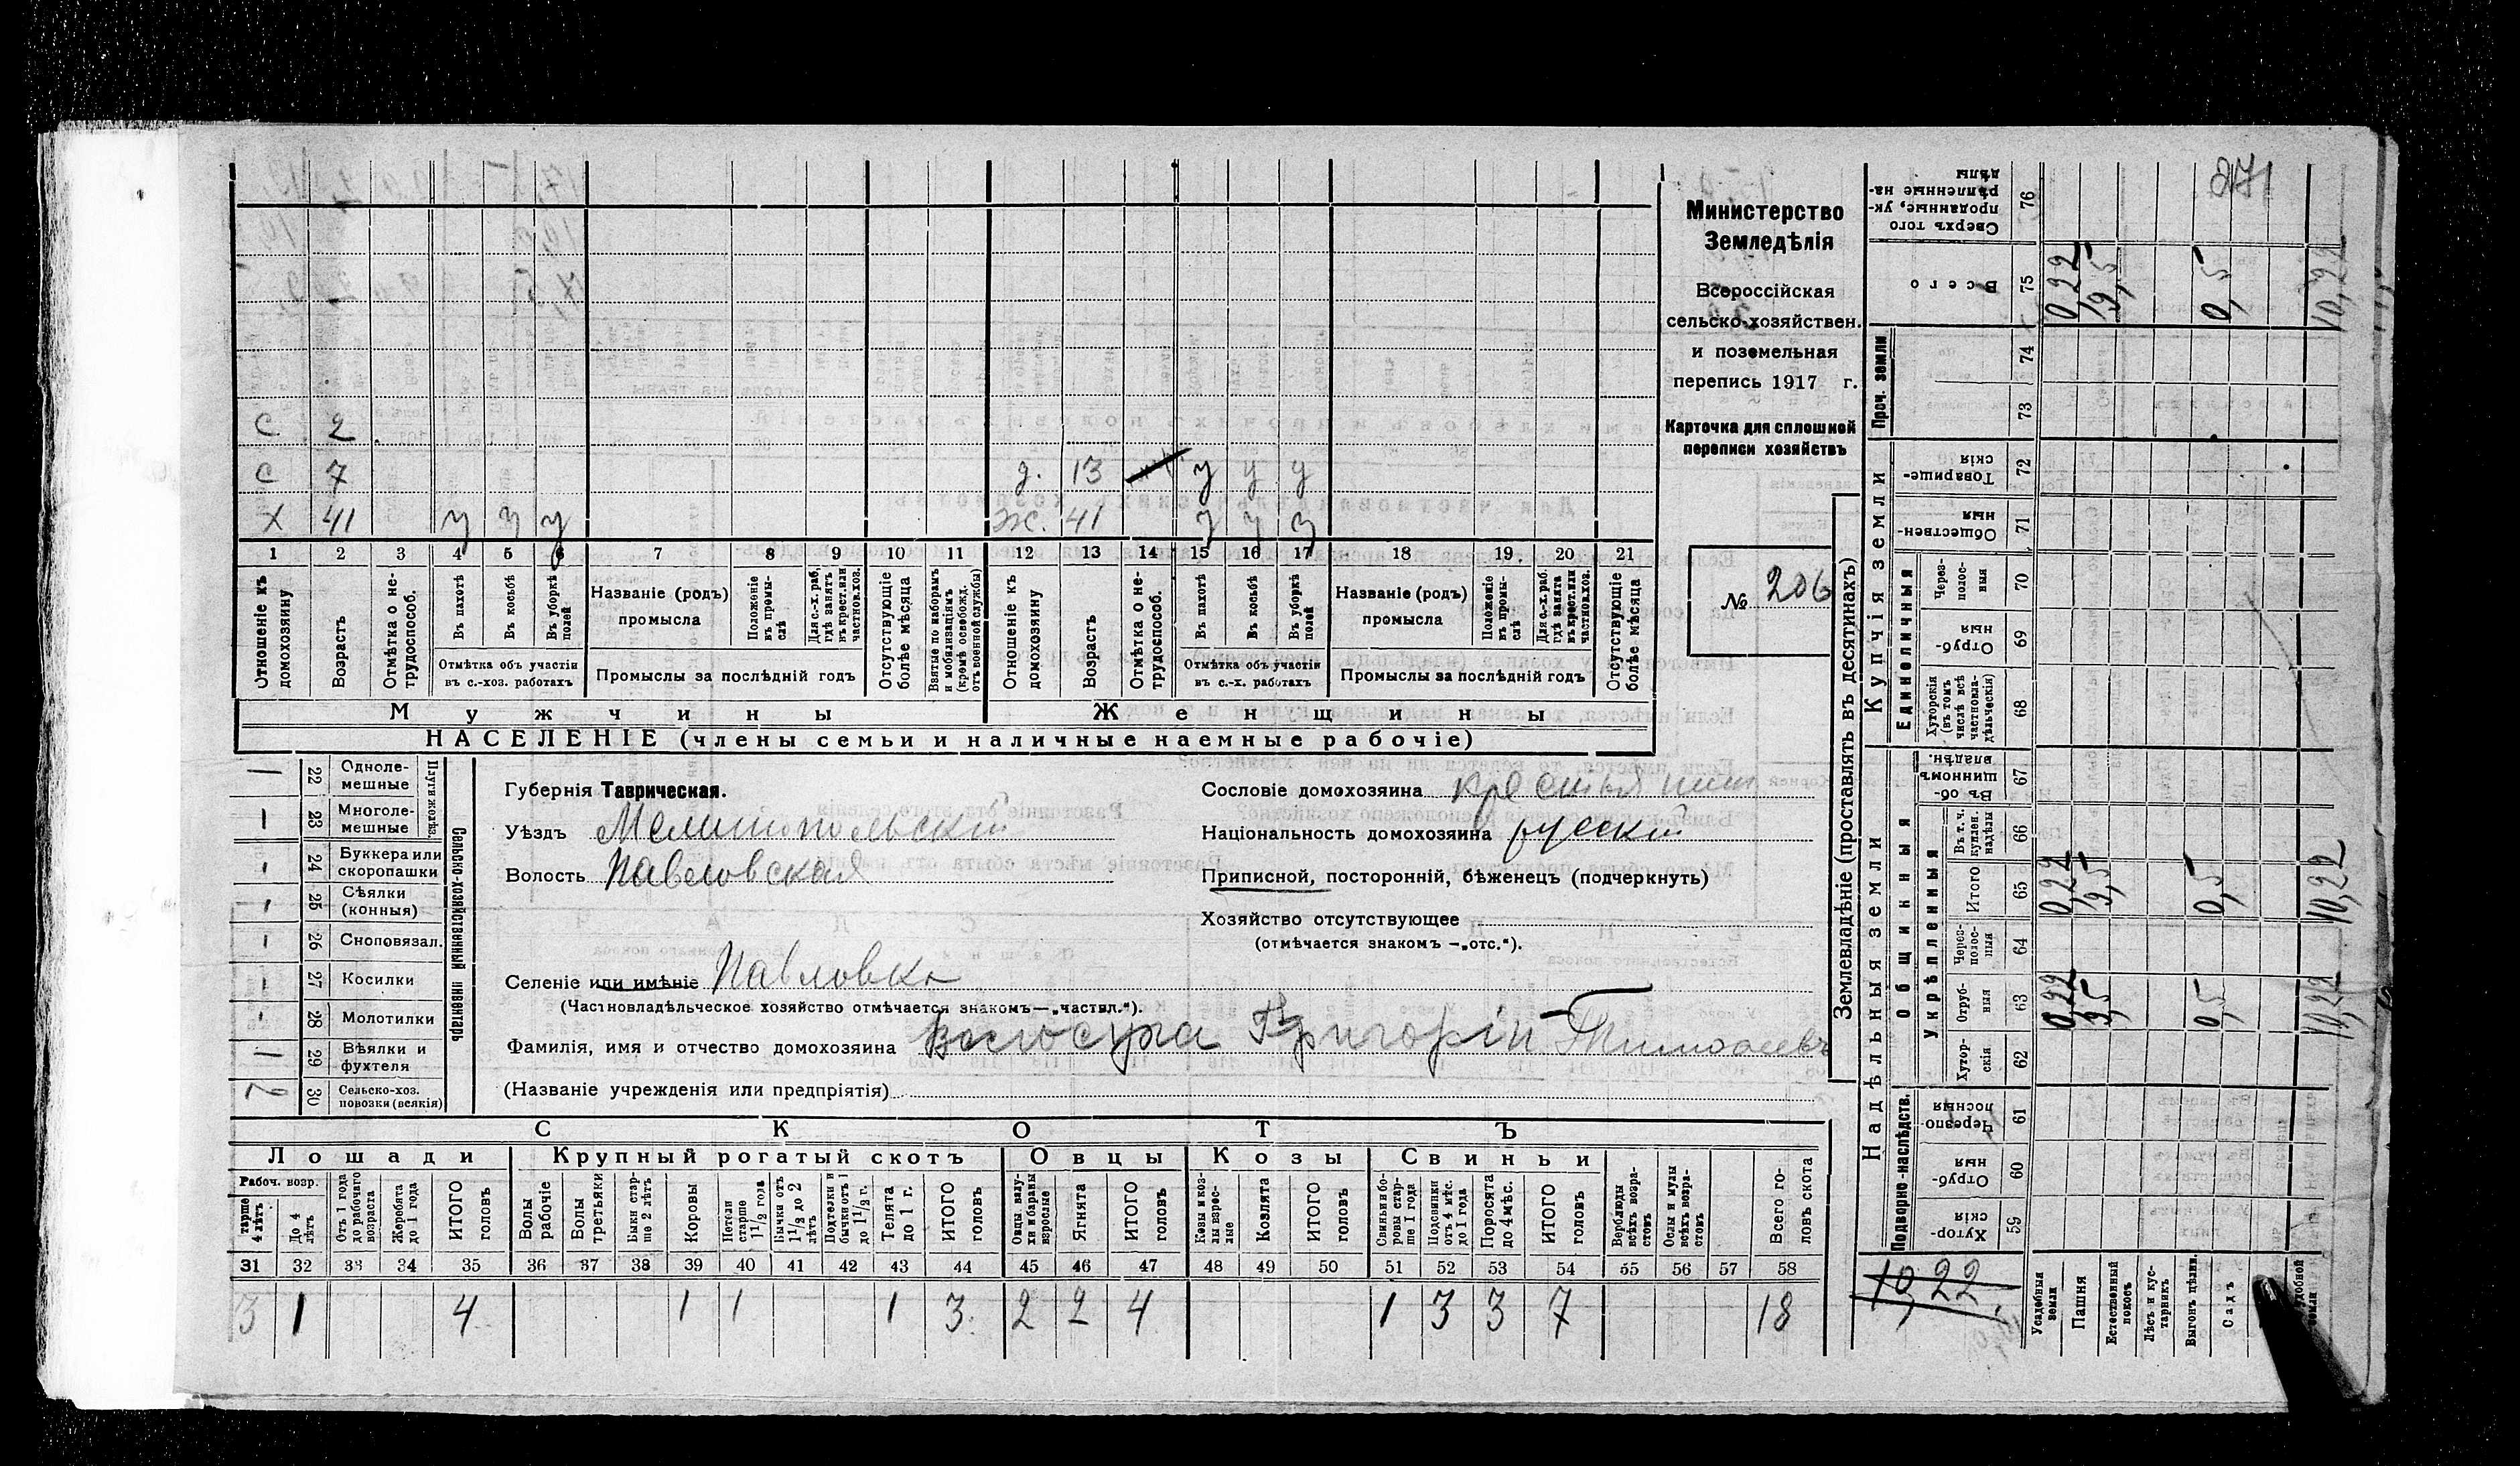 271
Министерство
Земледѣлія
Всероссійская
сельско-хозяйствен.
и поземельная
перепись 1917 г.
Карточка для сплошной
переписи хозяйствъ
№ 206
С 2
С 7 д. 13 у у у
Х 41 у у у Ж. 41 у у у
1 2 3 4 5 6 7 8 9 10 11 12 13 14 15 16 17 18 19 20 21
Отношеніе къ домохозяину
Возрастъ
Отмѣтка о не-трудоспособ.
Въ пахотѣ
Въ косьбѣ
Въ уборкѣ полей
Отмѣтка объ участіи
въ с.-хоз. работахъ
Названіе (родъ)
промысла
Положеніе въ промы-слѣ
Для с.-х. раб. гдѣ занятъ въ крест. или частнов. хоз.
Промыслы за послѣдній годъ
Отсутствующіе болѣе мѣсяца
Взятые по наборамъ и мобилизаціямъ (кромѣ освобожд. отъ военной службы)
Отношеніе къ домохозяину
Возрастъ
Отмѣтка о не-трудоспособ.
Въ пахотѣ
Въ косьбѣ
Въ уборкѣ полей
Отмѣтка объ участіи
въ с.-х. работахъ
Названіе (родъ)
промысла
Положеніе въ промы-слѣ
Для с.-х. раб. гдѣ занята въ крест. или частнов. хоз.
Промыслы за послѣдній годъ
Отсутствующіе болѣе мѣсяца
Мужчины Женщины
НАСЕЛЕНІЕ (члены семьи и наличные наемные рабочіе)
Сельско-хозяйственный инвентарь
Плуги желѣз.
1 22 Однолемешные
— 23 Многолемешные
- 24 Буккера или скоропашки
- 25 Сѣялки (конныя)
- 26 Сноповязал.
- 27 Косилки
- 28 Молотилки
1 29 Вѣялки и фухтеля
2 30 Сельско-хоз. повозки (всякія)
Губернія Таврическая.
Уѣздъ Мелитопольскій
Волость Павловская
Сословіе домохозяина крестьянин
Національность домохозяина русскій
Приписной, посторонній, бѣженецъ (подчеркнуть)
Хозяйство отсутствующее
(отмѣчается знакомъ —„отс.“).
Селеніе или имѣніе Павловка
(Частновладѣльческое хозяйство отмѣчается знакомъ—„частвл.“).
Фамилія, имя и отчество домохозяина Григорій
(Названіе учрежденія или предпріятія)
СКОТЪ
Лошади Крупный рогатый скотъ Овцы Козы Свиньи
Рабоч. возр.
старше 4 лѣтъ
До 4 лѣтъ
Отъ 1 года до рабочаго возраста
Жеребята до 1 года
ИТОГО головъ
Волы рабочіе
Волы третьяки
Быки стар-ше 2 лѣтъ
Коровы
Нетели старше 1½ года
Бычки отъ 1½ до 2 лѣтъ
Подтелки и бычки отъ 1 до 1½ г.
Телята до 1 г.
ИТОГО головъ
Овцы валу-хи и бараны взрослые
Ягнята
ИТОГО головъ
Козы и коз-лы взрос-лые
Козлята
ИТОГО головъ
Свиньи и бо-ровы стар-ше 1 года
Подсвинки отъ 4 мѣс. до 1 года
Поросята до 4 мѣс.
ИТОГО головъ
Верблюды всѣхъ возра-стовъ
Ослы и мулы всѣхъ возра-стовъ
Всего го-ловъ скота
31 32 33 34 35 36 37 38 39 40 41 42 43 44 45 46 47 48 49 50 51 52 53 54 55 56 57 58
3 1 4 1 1 1 3 2 2 4 1 3 3 7 18
Землевладѣніе (проставлять въ десятинахъ)
Сверхъ того проданные, ук-рѣпленные на-дѣлы 76
Всего 75 0,22 9,5 0,5 10,22
Проч. земли
74
73
Купчія земли
Товарище-скія 72
Обществен-ныя 71
Единоличныя
Через-полос-ныя 70
Отруб-ныя 69
Хуторскія (въ томъ числѣ всѣ частновла-дѣльческія) 68
Надѣльныя земли
Общинныя
Въ об-щинномъ владѣн. 67
Укрѣпленныя
Въ т. ч. куплен. надѣлы 66
Итого 65 0,22 9,5 0,5 10,22
Через-полос-ныя 64
Отруб-ныя 63 0,22 9,5 0,5 10,22
Хутор-скія 62
Подворно-наслѣдств.
Черезпо-лосныя 61
Отруб-ныя 60
Хутор-скія 59
10,22
Усадебныя земли
Пашня
Естественный покосъ
Лѣсъ и кус-тарникъ
Выгонъ цѣлин.
Садъ